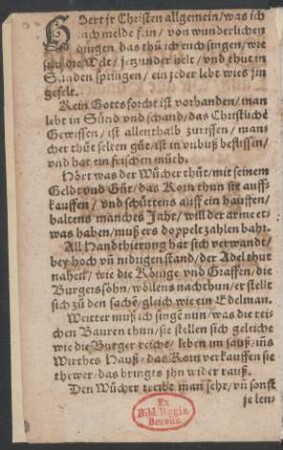 Hört jr Christen allgemein/was ich
euch melde fein/von wunderlichen
dingen das thů ich euch singen/wie
sich die Welt/jetzunder helt/vnd thut in
Sünden springen/ein jeder lebt wies jm
gefelt.
Kein Gotts forcht ist vorhanden/man
lebt in Sünd vnd schand/das Christliche
Gewissen/ist allenthalb zurissen/man-
cher thüt selten gůt/ist in vnbuß beflissen/
vnd hat ein frischen můth.
Hört was der Wücher thůt/mit seinem
Geldt vnd Gůt/das Korn thun sie auff-
kauffen/vnd schüttens auff ein hauffen/
haltens manches Jahr/will der arme et-
was haben/muß ers doppelt zahlen bahr.
All Handthierung hat sich verwandt/
bey hoch vñ nidrigen stand/der Adel thut
nahen/wie die Könige vnd Graffen/die
Burgerssöhn/wöllens nachthun/er stellt
sich zů den sachē/gleich wie ein Edelman.
Weitter muß ich singē nun/was die rei-
chen Bauren thun/sie stellen sich geleiche
wie die Burger reiche/leben im sauß/ins
Wirthes Hauß/das Korn verkauffen sie
thewer/das bringts jhn wider rauß.
Den Wücher treibt man sehr/vñ sonst
je len-
Ex
Bibl. Regia
Berolin.